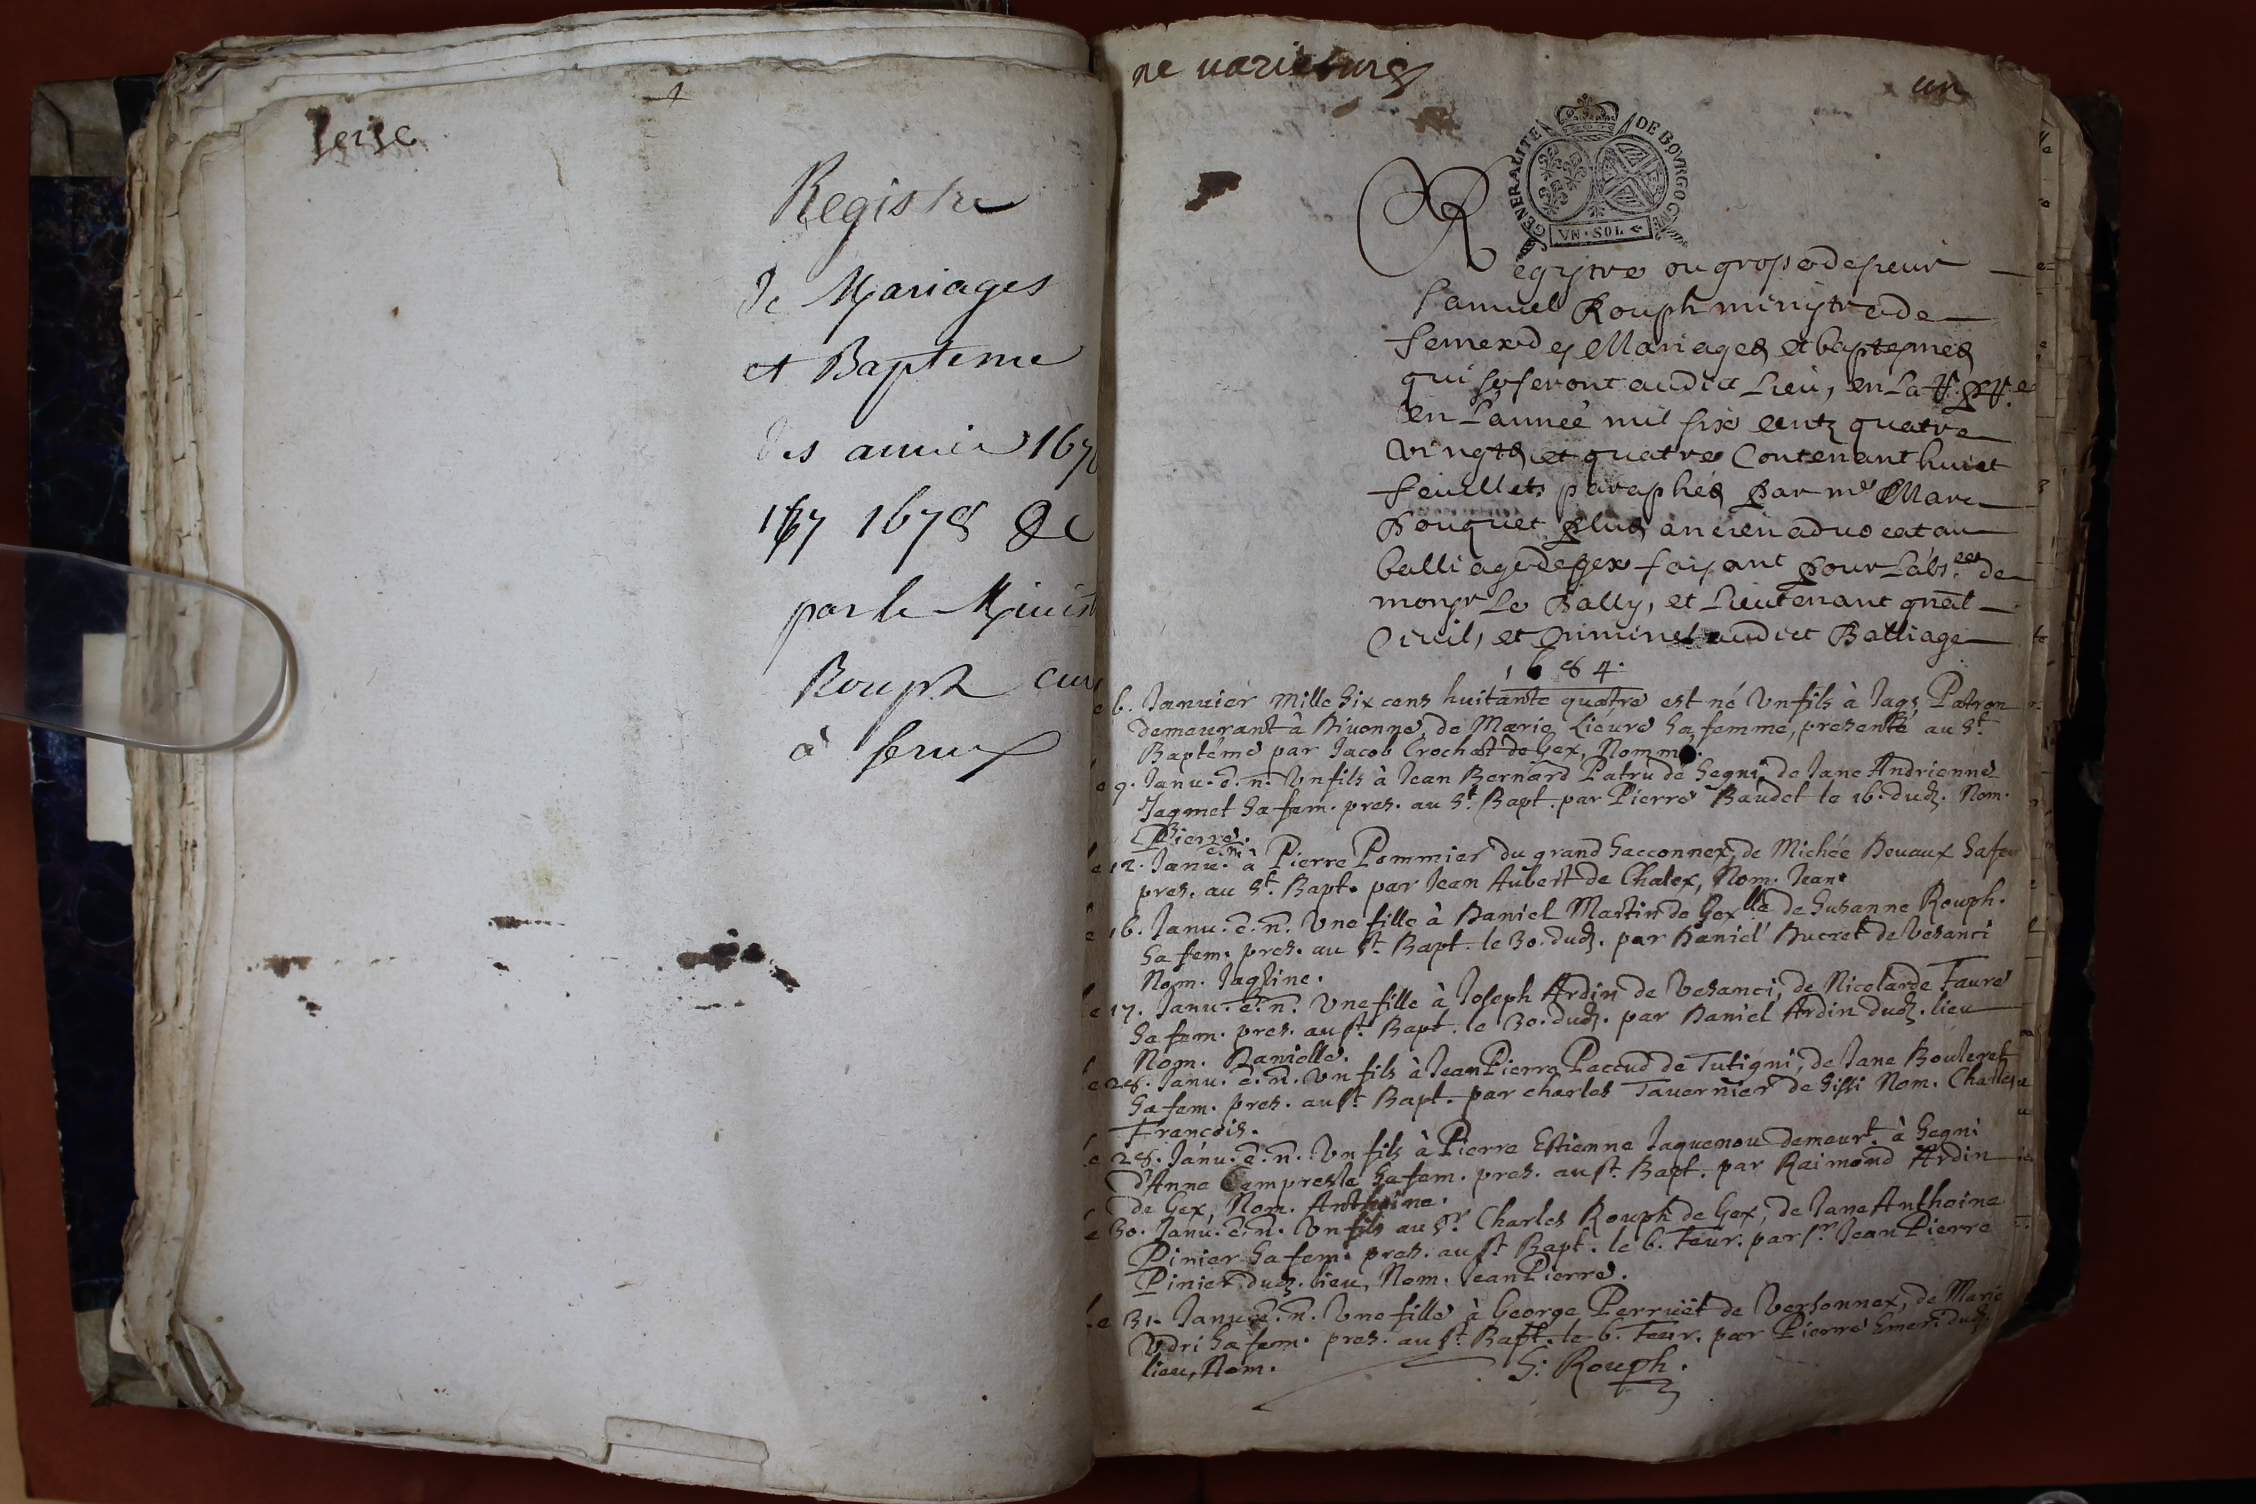 seize
Registre
de Mariages
et Bapteme
des années 167
1677 1678 &c
par le Minist
Rouph
à sernex
ne varietur
un
GENERALITE DE BOVRGOGNE
VN·SOL
Regystre ou grosse de sieur
Samuel Rouph minystre de
sernex des Mariages et baptesmes
qui se feront audict Lieu, en La
en L'année mil six centz quatre
vingts et quatre Contenant huict
feuillets paraphés Par me Marc
Bouquet Plus ancien advocat au
balliage de gex faisant Pour L'absce de
monsr Le Bally, et Lieutenant gnãl
Civil, et criminel audict Balliage
1684.
le 6. Januier Mille Six cens huitante quatre est né Vn fils à Jaqs Patron
demeurant à Diuonne, de Marie Lieure Sa femme, presenté au St
Baptéme par Jacob Crochat de Gex, Nommé.
le 9. Janu. e. n. Vn fils à Jean Bernard Patru de Segni, de Jane Andrienne
Jaqmet Sa fem. pres. au St. Bapt. par Pierre Baudet le 16. dud. Nom.
Pierre.
le 12. Janu. e. n. à Pierre Pommier du grand Sacconnex, de Michée Deuaux Sa fem
pres. au St. Bapt. par Jean Aubert de Chalex, Nom. Jean.
le 16. Janu. e. n. Vne fille à Daniel Martin de Gex de lle Susanne Rouph.
Sa fem. pres. au St. Bapt. le 30. dud. par Daniel Ducret de Vesanci
Nom. Jaqline.
le 17. Janu. e. n. Vne fille à Joseph Ardin de Vesanci, de Nicolarde Faure
Sa fem. pres. au st. Bapt. le 30. dud. par Daniel Ardin dud. lieu
Nom. Danielle.
le 28. Janu. e. n. Vn fils à Jean Pierre Paccud de Tutigni, de Jane Bouleret
Sa fem. pres. au st. Bapt. par charles Tauernier de Sissi Nom. Charles
François.
le 28. Janu. e. n. Vn fils à Pierre Estienne Jaquemou demeurt. à Segni
d'Anne Compresle Sa fem. pres. au st. Bapt. par Raimond Ardin
de Gex, Nom. Anthoine.
le 30. Janu. e. n. Vn fils au Sr. Charles Rouph de Gex, de Jane Anthoine
Pinier Sa fem. pres. au st. Bapt. le 6. Feur. par sr. Jean Pierre
Pinier dud. lieu, Nom. Jean Pierre.
le 31. Janu. e. n. Vne fille à George Perruët de Versonnex, de Marie
Vdri Sa fem. pres. au st. Bapt. le 6. Feur. par Pierre Emer. dud.
lieu, Nom.
S: Rouph.